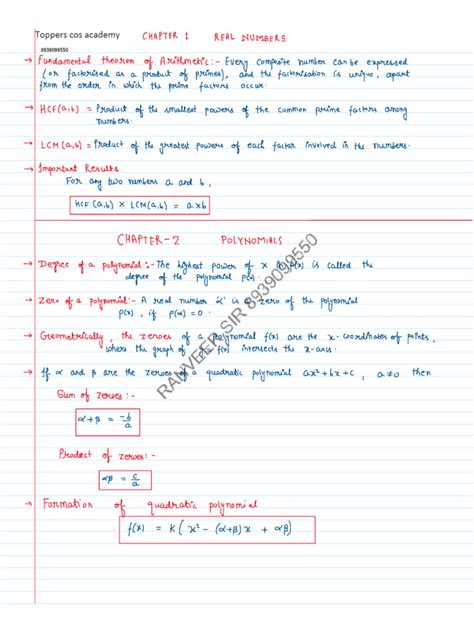 Toppers cos academy CHAPTER 1 REAL NUMBERS
8939099550
→ Fundamental theorem of Arithmetic :- Every composite number can be expressed
(or factorised as a product of primes), and the factorisation is unique, apart
from the order in which the prime factors occur.
→ HCF(a,b) = Product of the smallest powers of the common prime factors among
numbers.
→ LCM(a,b) = Product of the greatest powers of each factor involved in the numbers.
→ Important Results
For any two numbers a and b,
HCF(a,b) × LCM(a,b) = a×b
CHAPTER-2 POLYNOMIALS
→ Degree of a polynomial :- The highest power of x in p(x) is called the
degree of the polynomial p(x).
→ Zero of a polynomial :- A real number 'α' is a zero of the polynomial
p(x), if p(α) = 0.
→ Geometrically, the zeroes of a polynomial f(x) are the x-coordinates of points,
where the graph of y = f(x) intersects the x-axis.
→ If α and β are the zeroes of a quadratic polynomial ax²+bx+c, a≠0 then
Sum of zeroes :-
α+β = -b/a
Product of zeroes :-
αβ = c/a
→ Formation of quadratic polynomial
f(x) = K ( x² - (α+β) x + αβ )
RANVEER SIR 8939099550